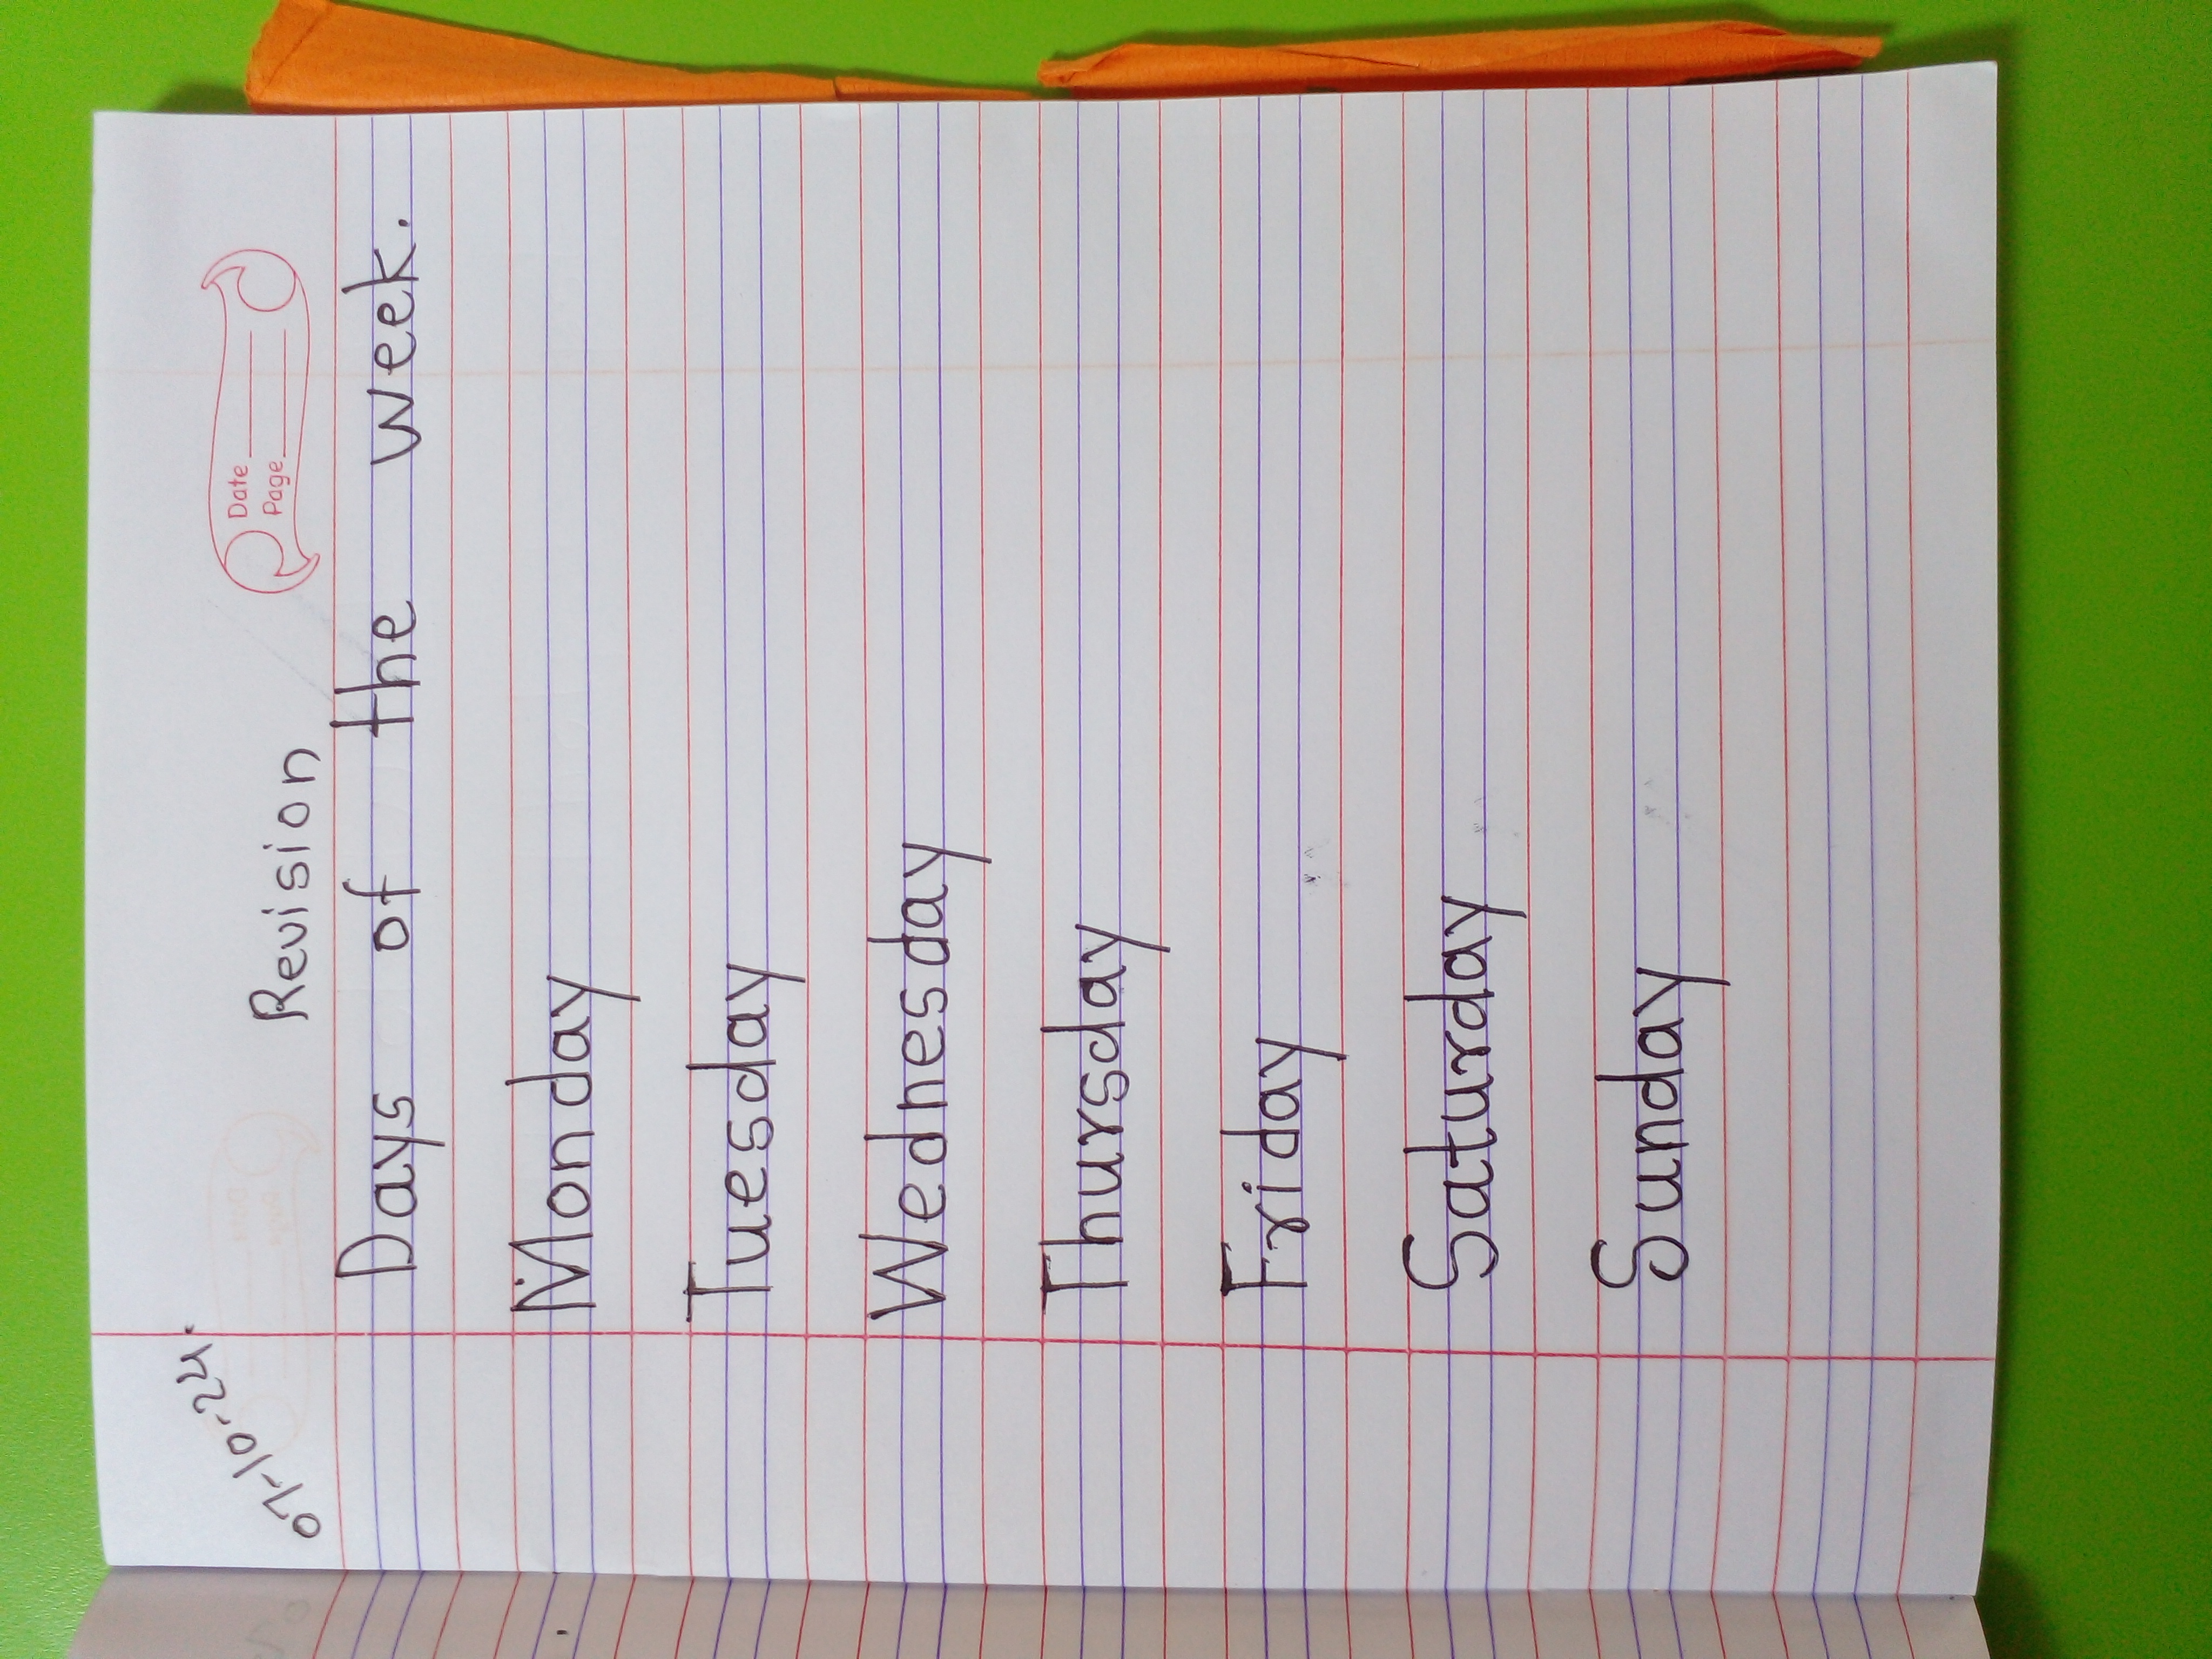 07-10-24.
Date
Page
Revision
Days of the week.
Monday
Tuesday
Wednesday
Thursday
Friday
Saturday
Sunday